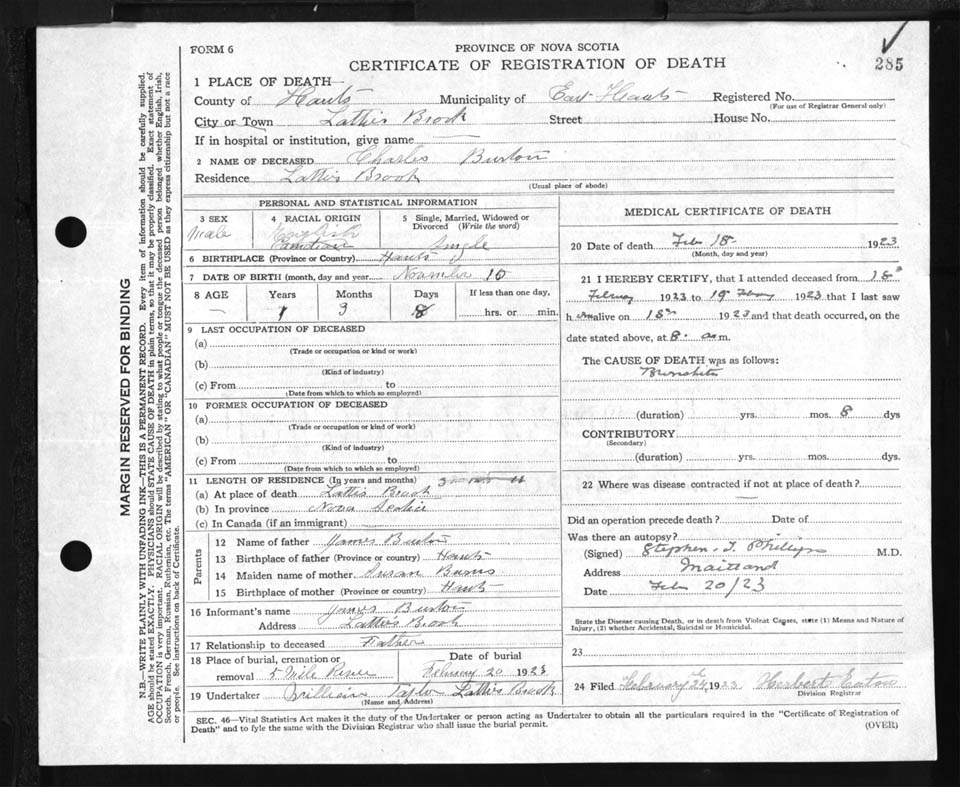 285
FORM 6
PROVINCE OF NOVA SCOTIA
CERTIFICATE OF REGISTRATION OF DEATH
1 PLACE OF DEATH—
County of Hants Municipality of East Hants Registered No.
(For use of Registrar General only)
City or Town Latties Brook Street House No.
If in hospital or institution, give name
2 NAME OF DECEASED Charles Burton
Residence Latties Brook
(Usual place of abode)
PERSONAL AND STATISTICAL INFORMATION
3 SEX 4 RACIAL ORIGIN 5 Single, Married, Widowed or
Divorced (Write the word)
Male English Single
6 BIRTHPLACE (Province or Country) Hants
7 DATE OF BIRTH (month, day and year) November 10
8 AGE Years Months Days If less than one day,
— 1 3 8 hrs. or min.
9 LAST OCCUPATION OF DECEASED
(a)
(Trade or occupation or kind or work)
(b)
(Kind of industry)
(c) From to
(Date from which to which so employed)
10 FORMER OCCUPATION OF DECEASED
(a)
(Trade or occupation or kind of work)
(b)
(Kind of industry)
(c) From to
(Date from which to which so employed)
11 LENGTH OF RESIDENCE (In years and months)
(a) At place of death Latties Brook
(b) In province Nova Scotia
(c) In Canada (if an immigrant)
Parents
12 Name of father James Burton
13 Birthplace of father (Province or country) Hants
14 Maiden name of mother Susan Burns
15 Birthplace of mother (Province or country) Hants
16 Informant's name James Burton
Address Latties Brook
17 Relationship to deceased Father
18 Place of burial, cremation or Date of burial
removal 5 Mile River February 20 1923
19 Undertaker William Taylor Latties Brook
(Name and Address)
MEDICAL CERTIFICATE OF DEATH
20 Date of death Feb 18 1923
(Month, day and year)
21 I HEREBY CERTIFY, that I attended deceased from 18th
February 1923 to 19th February 1923 that I last saw
h im alive on 18th 1923 and that death occurred, on the
date stated above, at 8 a m.
The CAUSE OF DEATH was as follows:
Bronchitis
(duration) yrs. mos. 8 dys
CONTRIBUTORY
(Secondary)
(duration) yrs. mos. dys.
22 Where was disease contracted if not at place of death?
—
Did an operation precede death? Date of
Was there an autopsy?
(Signed) Stephen T. Phillips M.D.
Address Maitland
Date Feb 20/23
State the Disease causing Death, or in death from Violent Causes, state (1) Means and Nature of
Injury, (2) whether Accidental, Suicidal or Homicidal.
23
24 Filed February 24, 1923 Herbert Eaton
Division Registrar
SEC. 46—Vital Statistics Act makes it the duty of the Undertaker or person acting as Undertaker to obtain all the particulars required in the "Certificate of Registration of
Death" and to fyle the same with the Division Registrar who shall issue the burial permit.
(OVER)
MARGIN RESERVED FOR BINDING
N.B.—WRITE PLAINLY WITH UNFADING INK—THIS IS A PERMANENT RECORD. Every item of information should be carefully supplied.
AGE should be stated EXACTLY. PHYSICIANS should STATE CAUSE OF DEATH in plain terms, so that it may be properly classified. Exact statement of
OCCUPATION is very important. RACIAL ORIGIN will be described by stating to what people or tongue the deceased person belonged whether English, Irish,
Scotch, French, German, Russian, Ruthenian, etc. The terms "AMERICAN" OR "CANADIAN" MUST NOT BE USED as they express citizenship but not a race
or people. See instructions on back of Certificate.